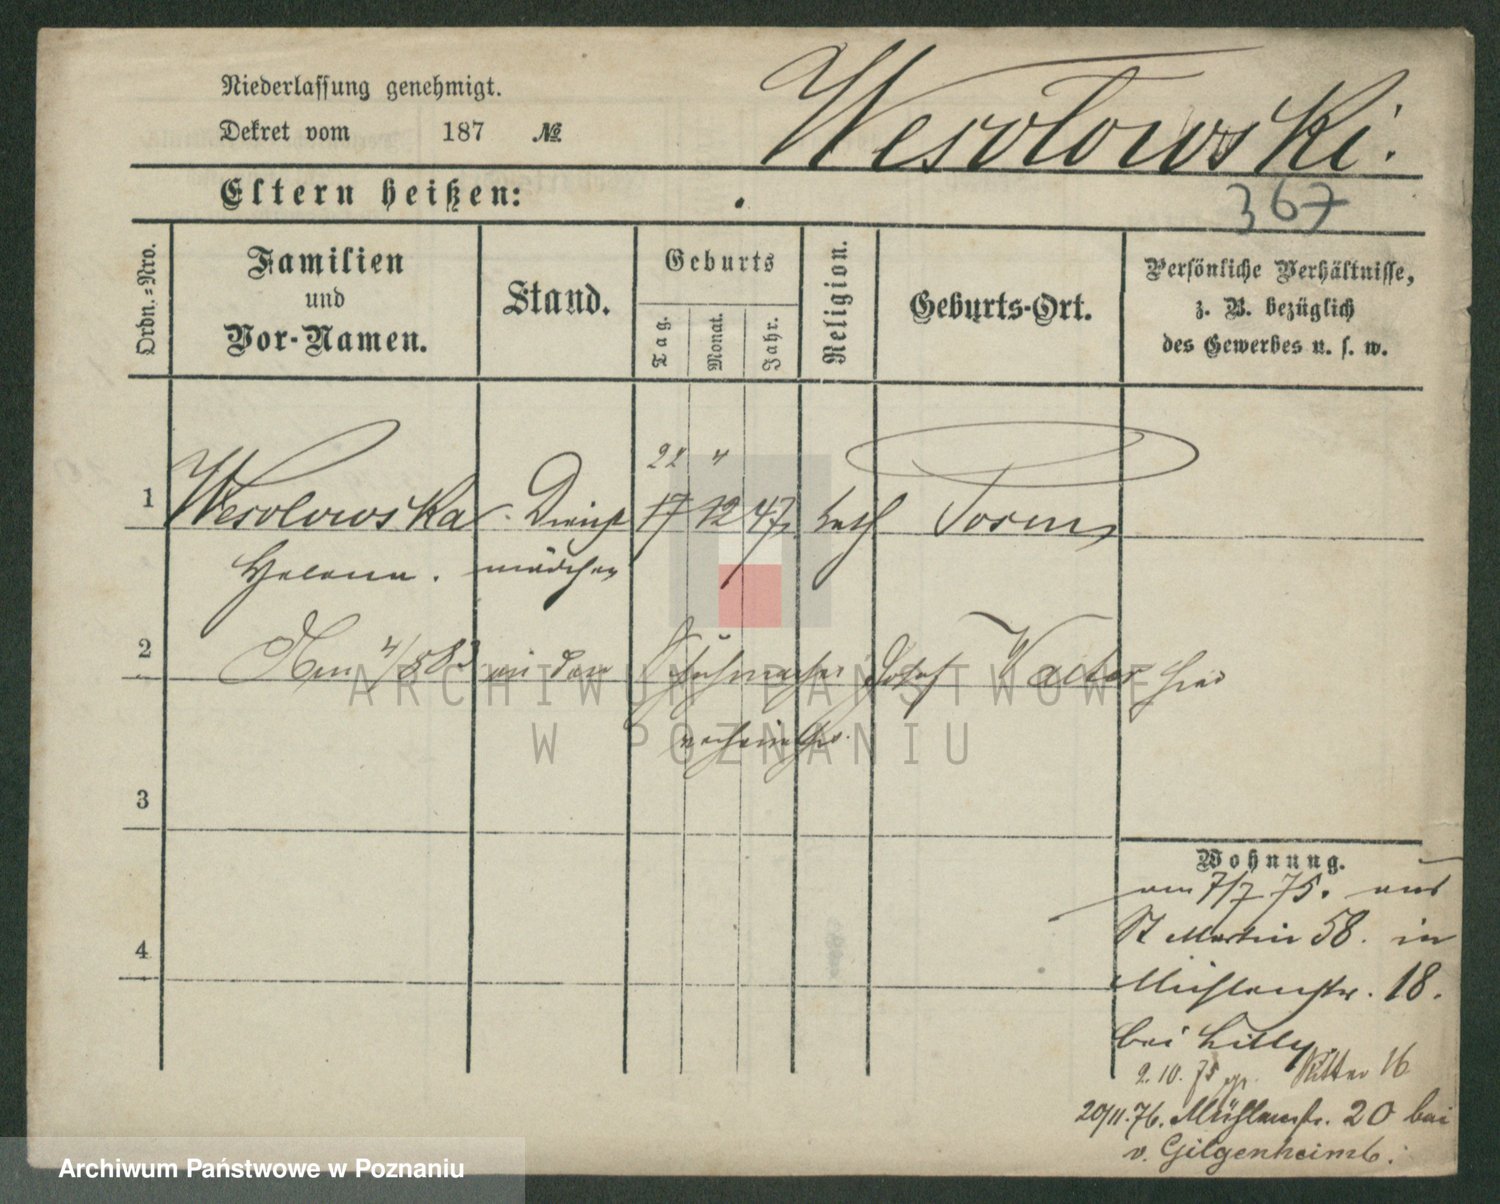 Niederlassung genehmigt.
Dekret vom 187 №
Wesołowski.
Eltern heißen:
367
Ordn.-Nro.
Familien
und
Vor-Namen.
Stand.
Geburts
Tag.
Monat.
Jahr.
Religion.
Geburts-Ort.
Persönliche Verhältnisse,
z. B. bezüglich
des Gewerbes u. s. w.
22 4
1 Wesolowska Dienst 17 12 47 kath Posen
Helena. mädchen
2 den 4/5 83 an den Schuhmacher Josef Walter hier
verheirathet.
ARCHIWUM PAŃSTWOWE
W POZNANIU
3
4
Wohnung.
am 7/7 75. aus
St Martin 58. in
Mühlenstr. 18.
bei Lilly.
2.10.75 Ritter 16
20/11.76. Mühlenstr. 20 bei
v. Gilgenheimb.
Archiwum Państwowe w Poznaniu